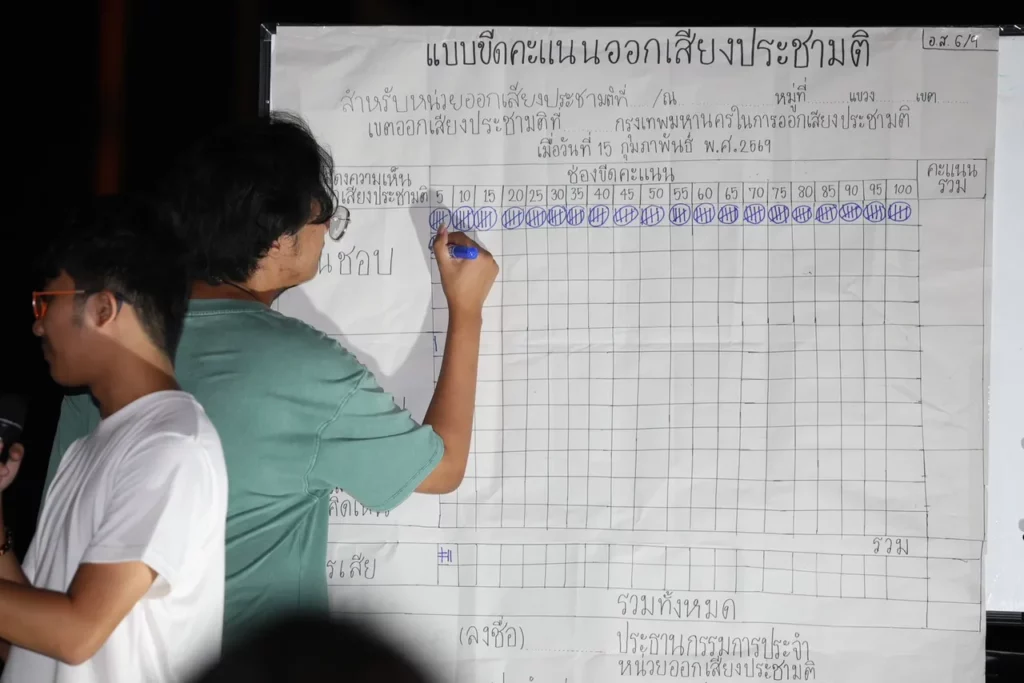 แบบขีดคะแนนออกเสียงประชามติ
อ.ส. 6/4
สำหรับหน่วยออกเสียงประชามติที่ /ณ หมู่ที่ แขวง เขต
เขตออกเสียงประชามติที่ กรุงเทพมหานครในการออกเสียงประชามติ
เมื่อวันที่ 15 กุมภาพันธ์ พ.ศ.2569
ช่องขีดคะแนน
คะแนน
รวม
5 10 15 20 25 30 35 40 45 50 55 60 65 70 75 80 85 90 95 100
รวม
รวมทั้งหมด
(ลงชื่อ)
ประธานกรรมการประจำ
หน่วยออกเสียงประชามติ